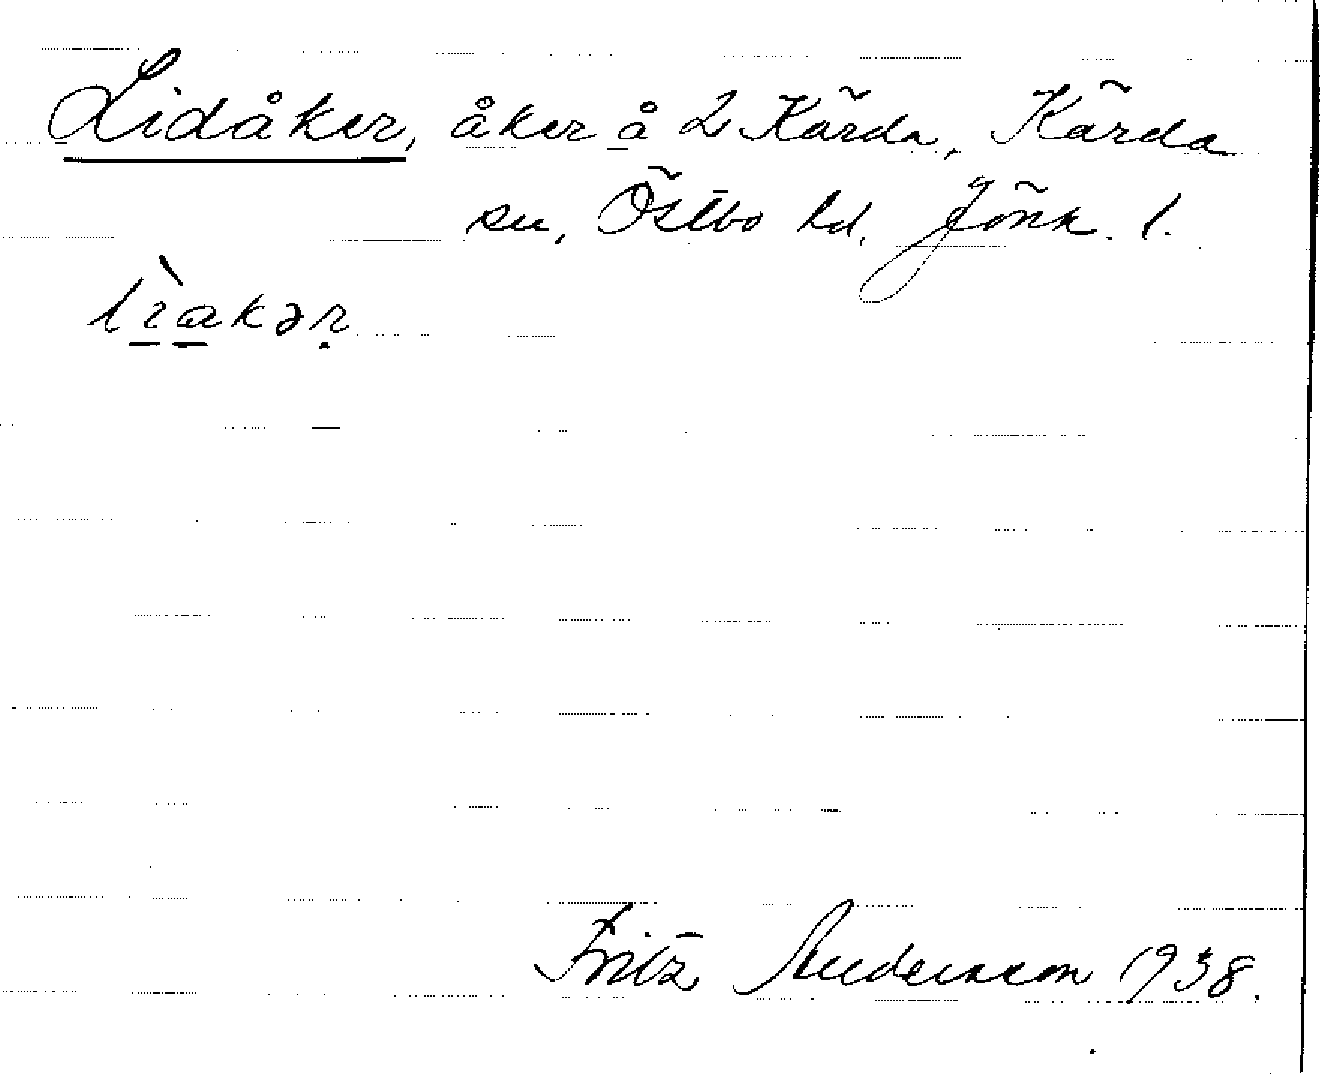 Lidåker, åker å 2 Kärda, Kärda
sn, Östbo hd. Jönk. l.
Fritz Andersson 1938.